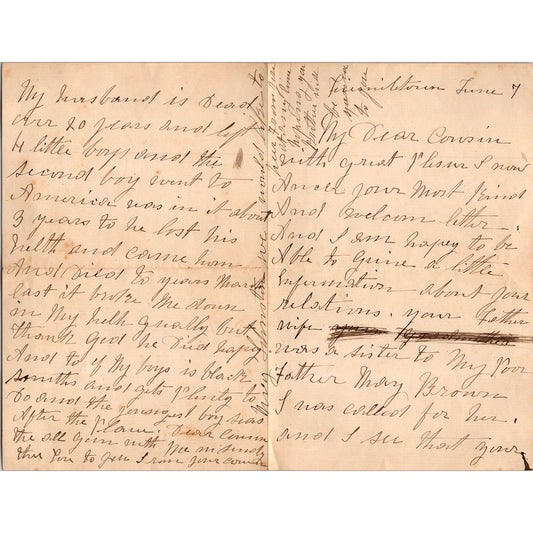 June 7
My Dear Cousin
with great Plesur I now
Ancer your Most Kind
And welcom letter.
And I am hapey to be
Able to guive a little
Information about your
relations. your Father
wife
was a sister to My Poor
Father Mary Brown
I was called for her.
and I see that your
My husband is Dead
over 20 years and left
4 little boys and the
second boy went to
America was in it about
3 years to he lost his
helth and came hom
And Died to years March
last it broke Me down
in My helth but
thank god he Died hapey
And to of My boys is black
smiths and gets Plenty to
Do and the youngest boy
After the Place. Dear Cousin
the all with Me in
ther love to you I your cousin